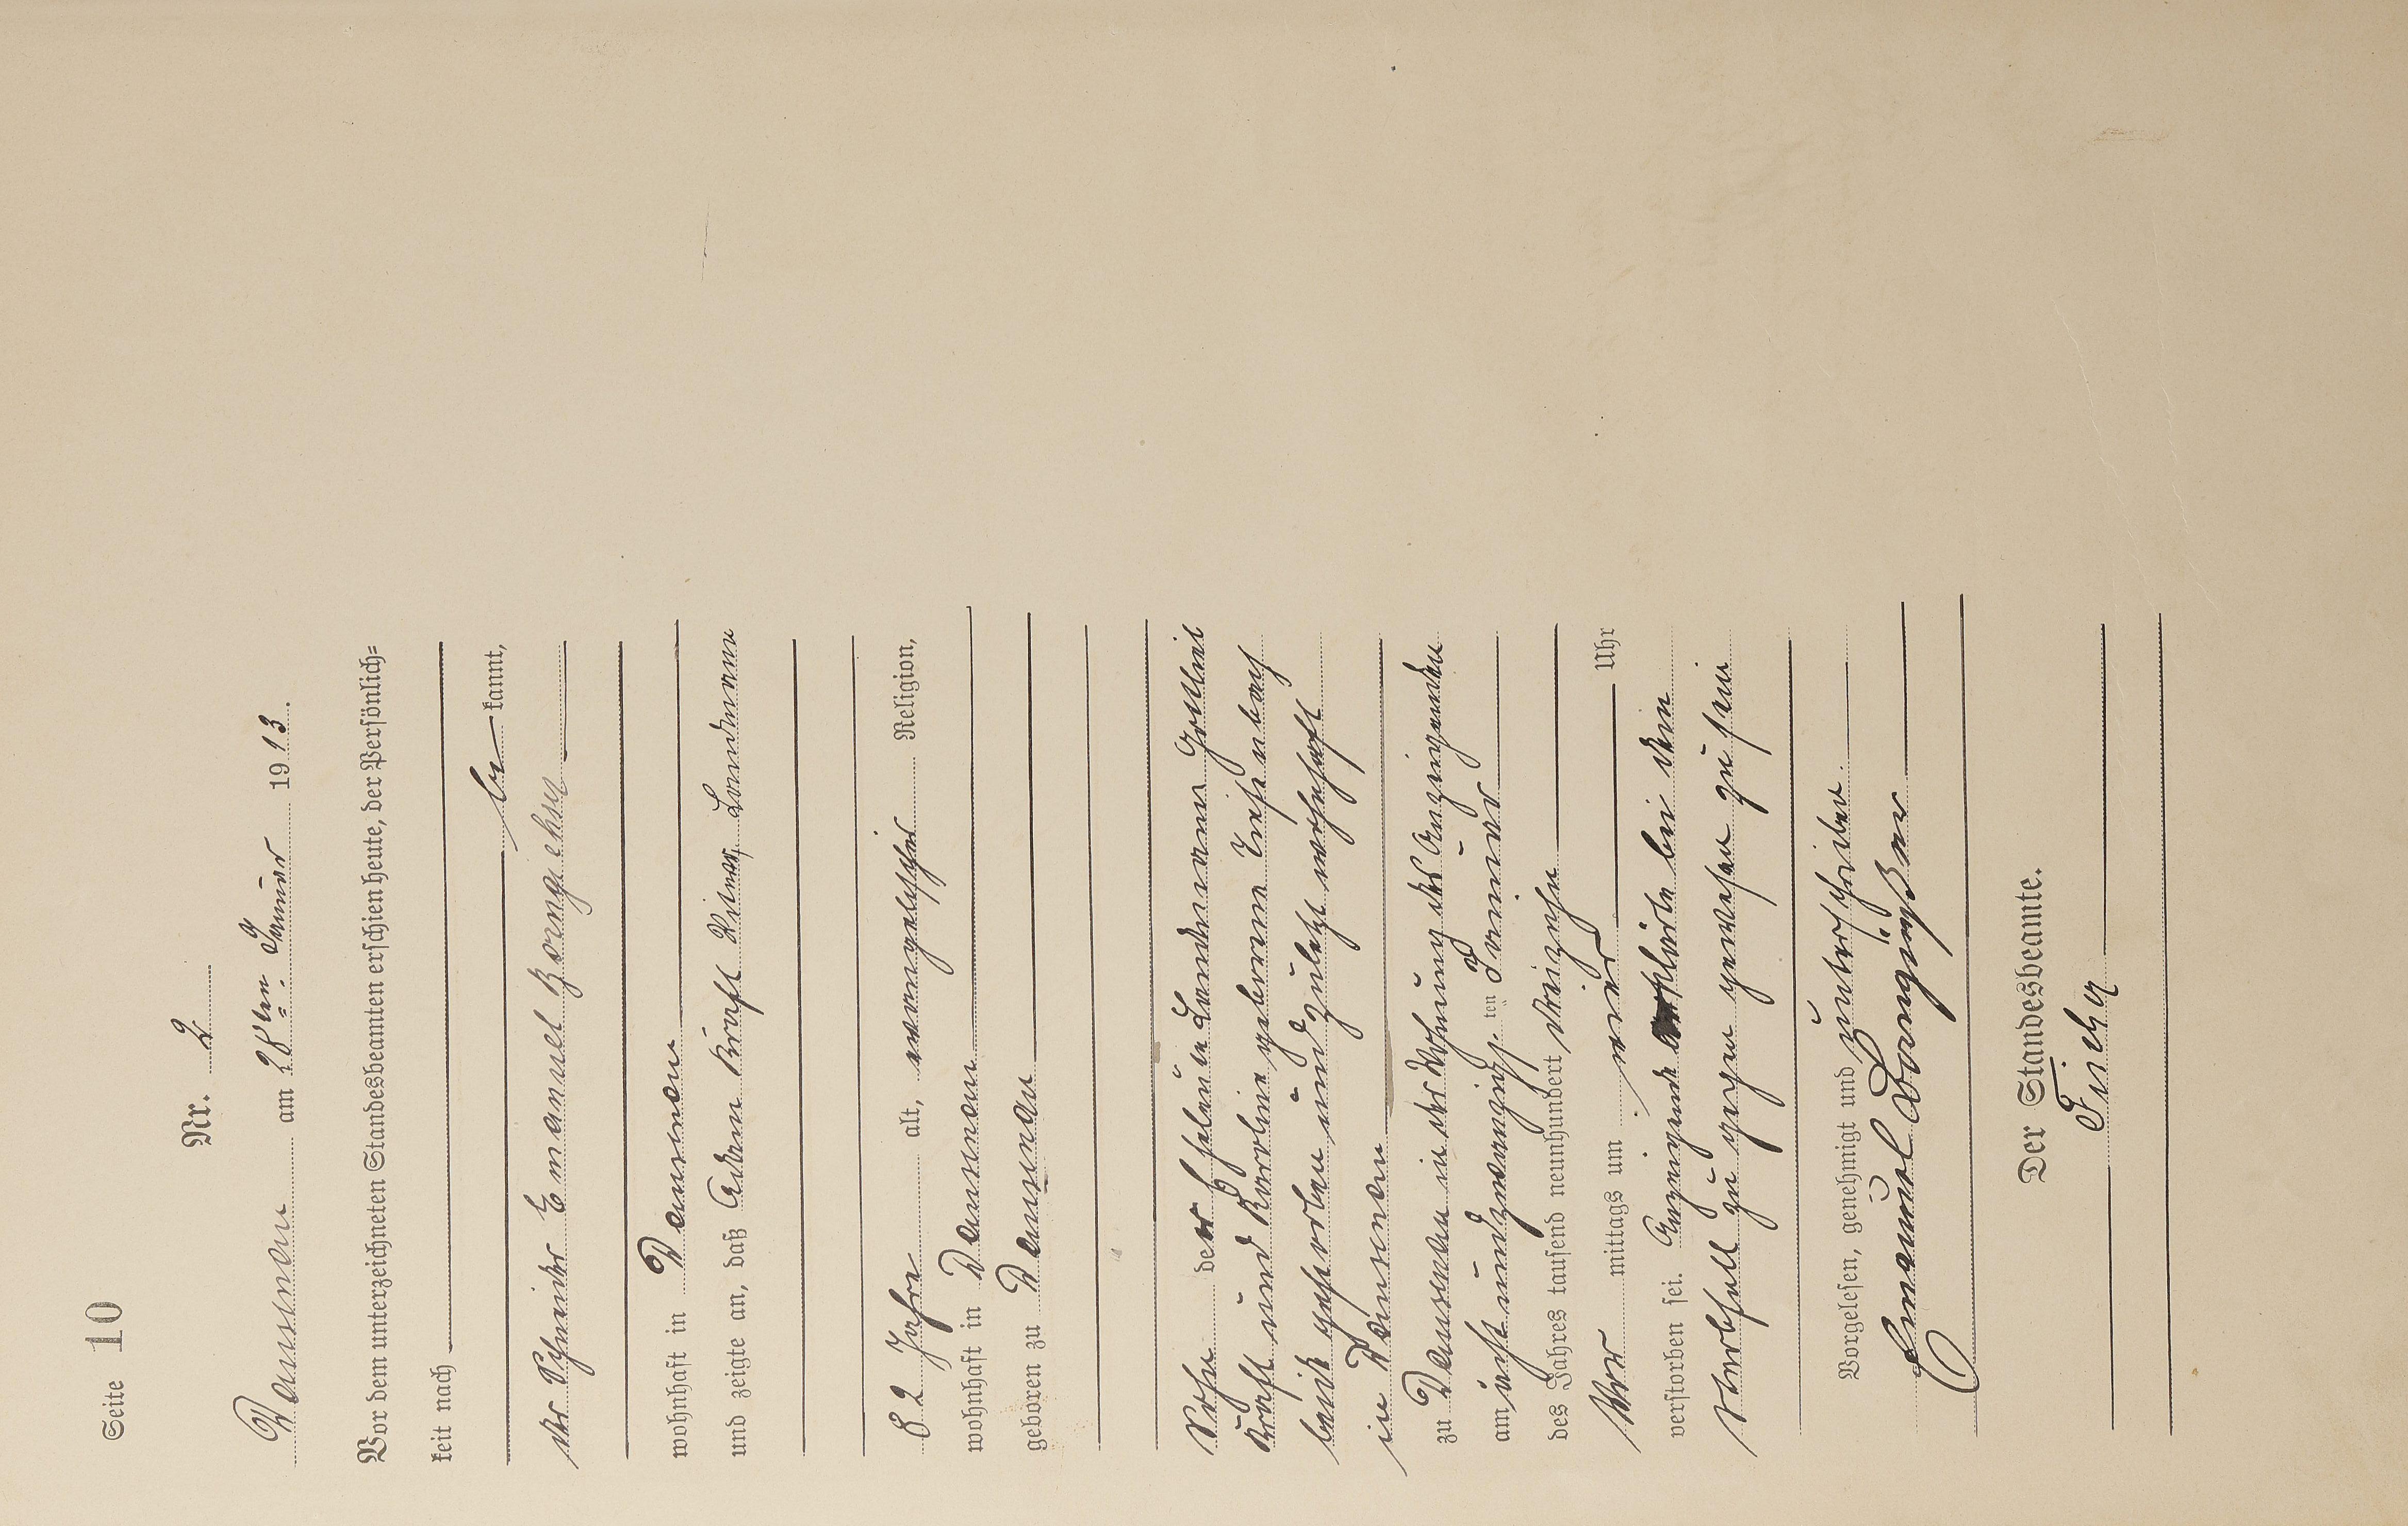 Seite 10
Nr. 2
Dausenau am 28ten Januar 1913.
Vor dem unterzeichneten Standesbeamten erschien heute, der Persönlich=
keit nach
be kannt,
der Schneider Emanuel
wohnhaft in Dausenau
und zeigte an, daß Adam Kraft Witwer, Landmann
82 Jahre alt, evangelischer Religion,
wohnhaft in Dausenau
geboren zu Dausenau
Sohn der Eheleute Landmann Gottlieb
Kraft und Karoline geborene
beide gestorben und zuletzt wohnhaft
in Dausenau
zu Dausenau in der Wohnung des Anzeigenden
am acht und zwanzigs ten Januar
des Jahres tausend neunhundert dreizehn
Vor mittags um vier Uhr
verstorben sei. Anzeigende erklärte bei dem
Sterbfall zu gegen gewesen zu sein
Vorgelesen, genehmigt und unterschrieben.
Emanuel
Der Standesbeamte.